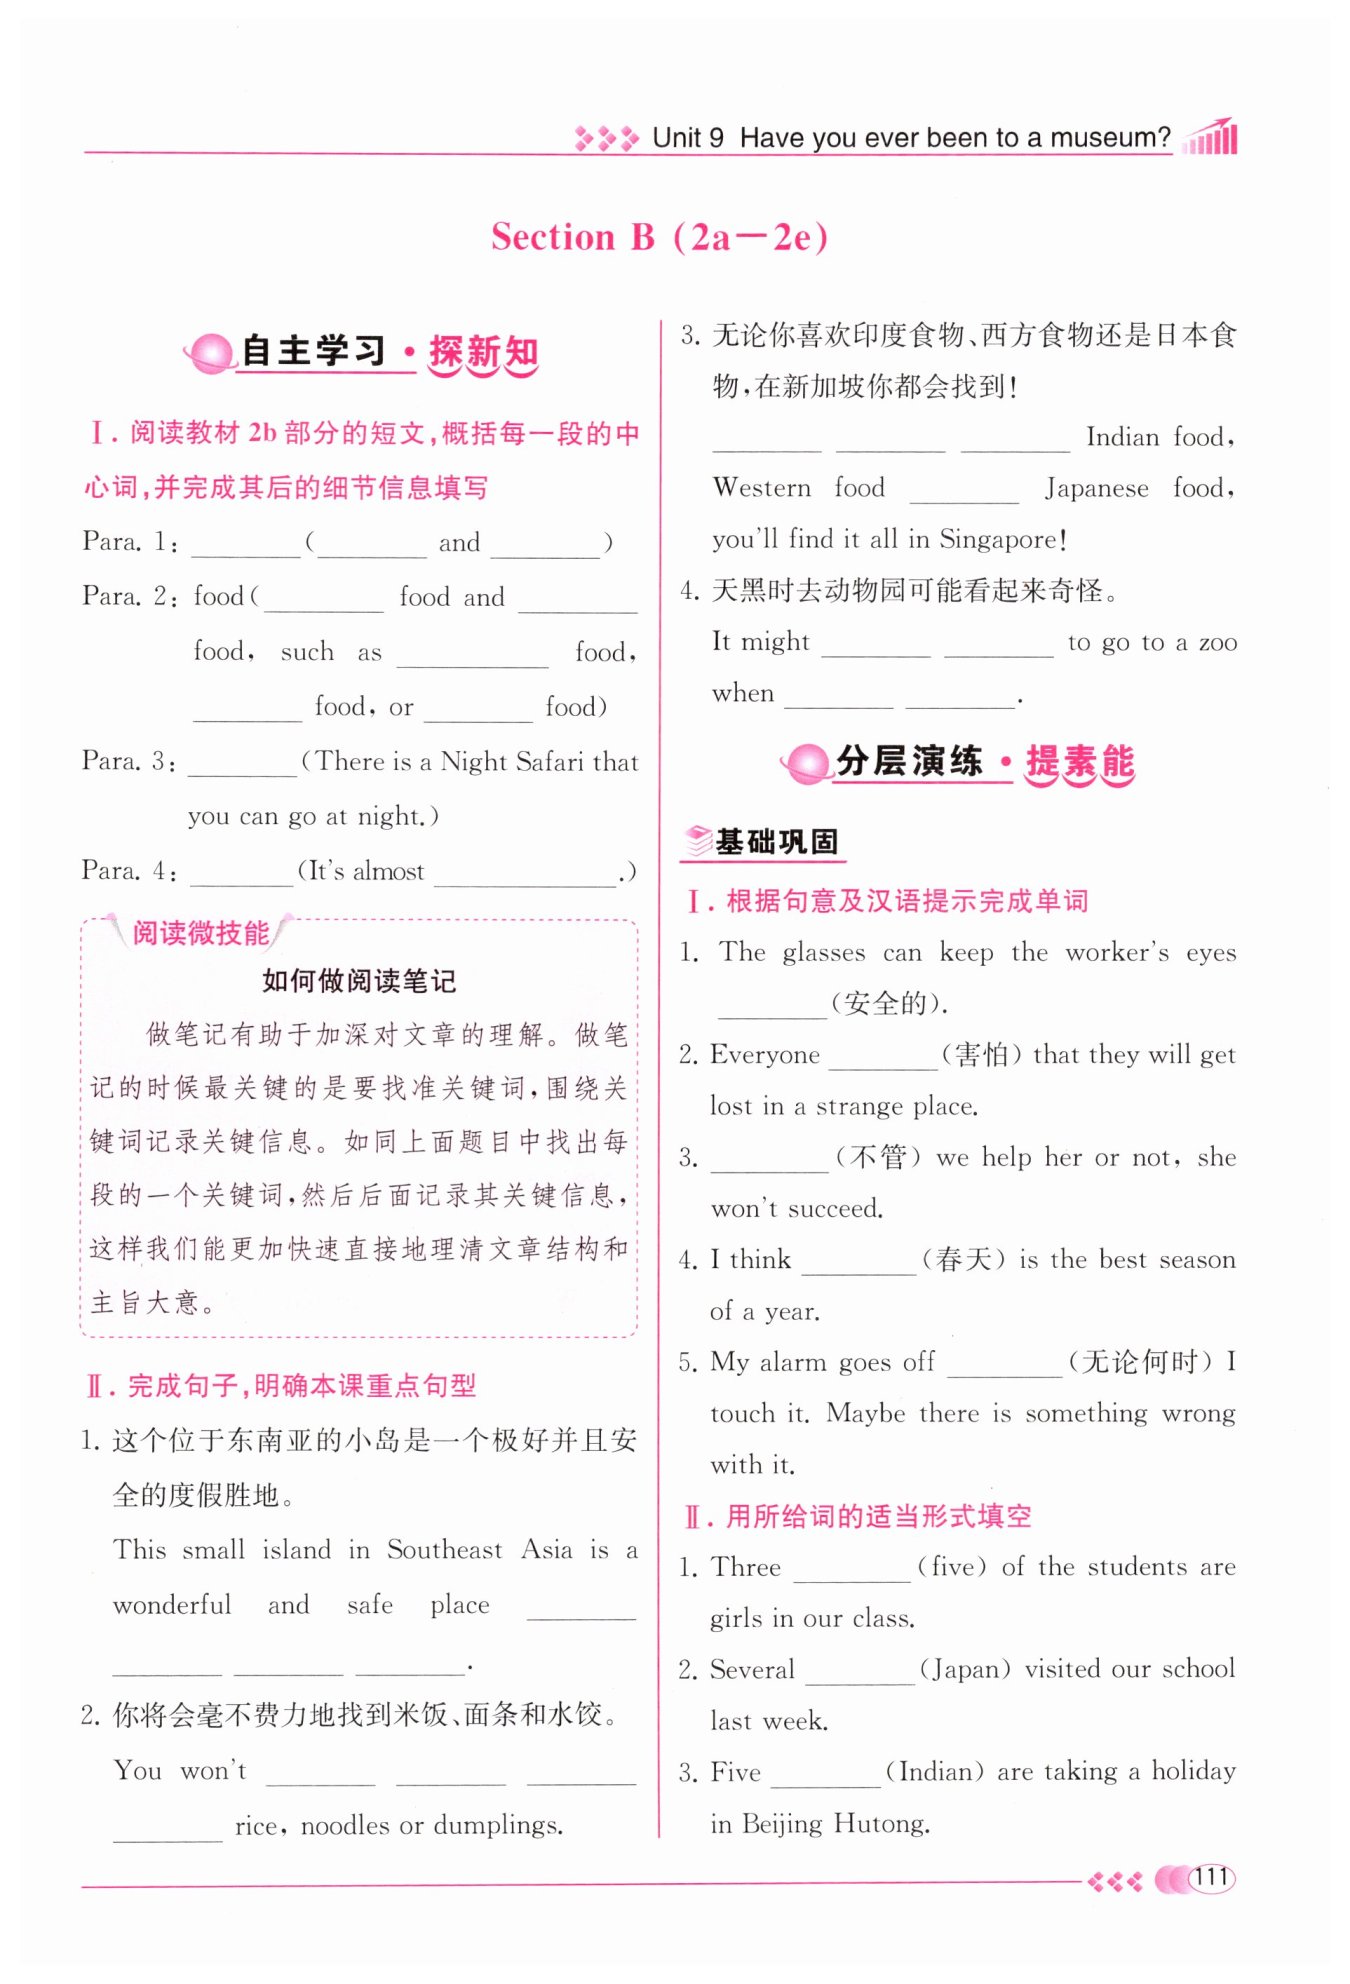 Unit 9 Have you ever been to a museum?
Section B (2a－2e)
自主学习·探新知
Ⅰ. 阅读教材 2b 部分的短文,概括每一段的中
心词,并完成其后的细节信息填写
Para. 1: ________(________ and ________)
Para. 2: food(________ food and ________
food, such as ________ food,
________ food, or ________ food)
Para. 3: ________(There is a Night Safari that
you can go at night.)
Para. 4: ________(It's almost ________.)
阅读微技能
如何做阅读笔记
做笔记有助于加深对文章的理解。做笔
记的时候最关键的是要找准关键词,围绕关
键词记录关键信息。如同上面题目中找出每
段的一个关键词,然后后面记录其关键信息,
这样我们能更加快速直接地理清文章结构和
主旨大意。
Ⅱ. 完成句子,明确本课重点句型
1. 这个位于东南亚的小岛是一个极好并且安
全的度假胜地。
This small island in Southeast Asia is a
wonderful and safe place ________
________ ________ ________.
2. 你将会毫不费力地找到米饭、面条和水饺。
You won't ________ ________ ________
________ rice, noodles or dumplings.
3. 无论你喜欢印度食物、西方食物还是日本食
物,在新加坡你都会找到!
________ ________ ________ Indian food,
Western food ________ Japanese food,
you'll find it all in Singapore!
4. 天黑时去动物园可能看起来奇怪。
It might ________ ________ to go to a zoo
when ________ ________.
分层演练·提素能
基础巩固
Ⅰ. 根据句意及汉语提示完成单词
1. The glasses can keep the worker's eyes
________(安全的).
2. Everyone ________(害怕) that they will get
lost in a strange place.
3. ________(不管) we help her or not, she
won't succeed.
4. I think ________(春天) is the best season
of a year.
5. My alarm goes off ________(无论何时) I
touch it. Maybe there is something wrong
with it.
Ⅱ. 用所给词的适当形式填空
1. Three ________(five) of the students are
girls in our class.
2. Several ________(Japan) visited our school
last week.
3. Five ________(Indian) are taking a holiday
in Beijing Hutong.
111